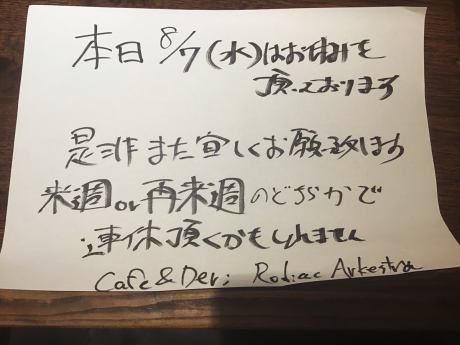 本日 8/7(水)はお休みを
頂いております
是非また宜しくお願い致します
来週or再来週のどちらかで
連休頂くかもしれません
Cafe & Deri Rodiac Arkestra